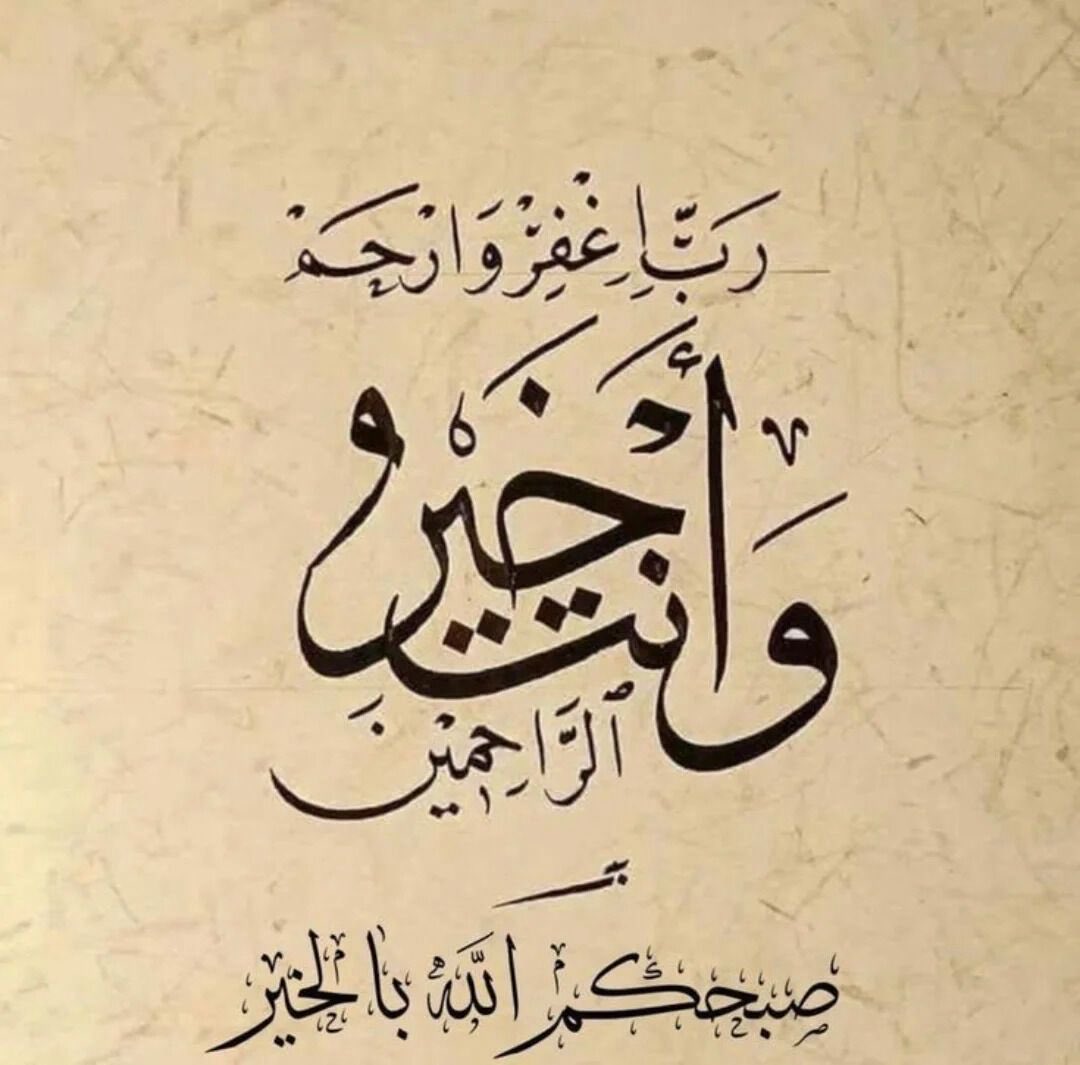 رَبِّ اِغْفِرْ وَارْحَمْ
وَأَنْتَ خَيْرُ
ٱلرَّاحِمِينَ
صبحكم الله بالخير